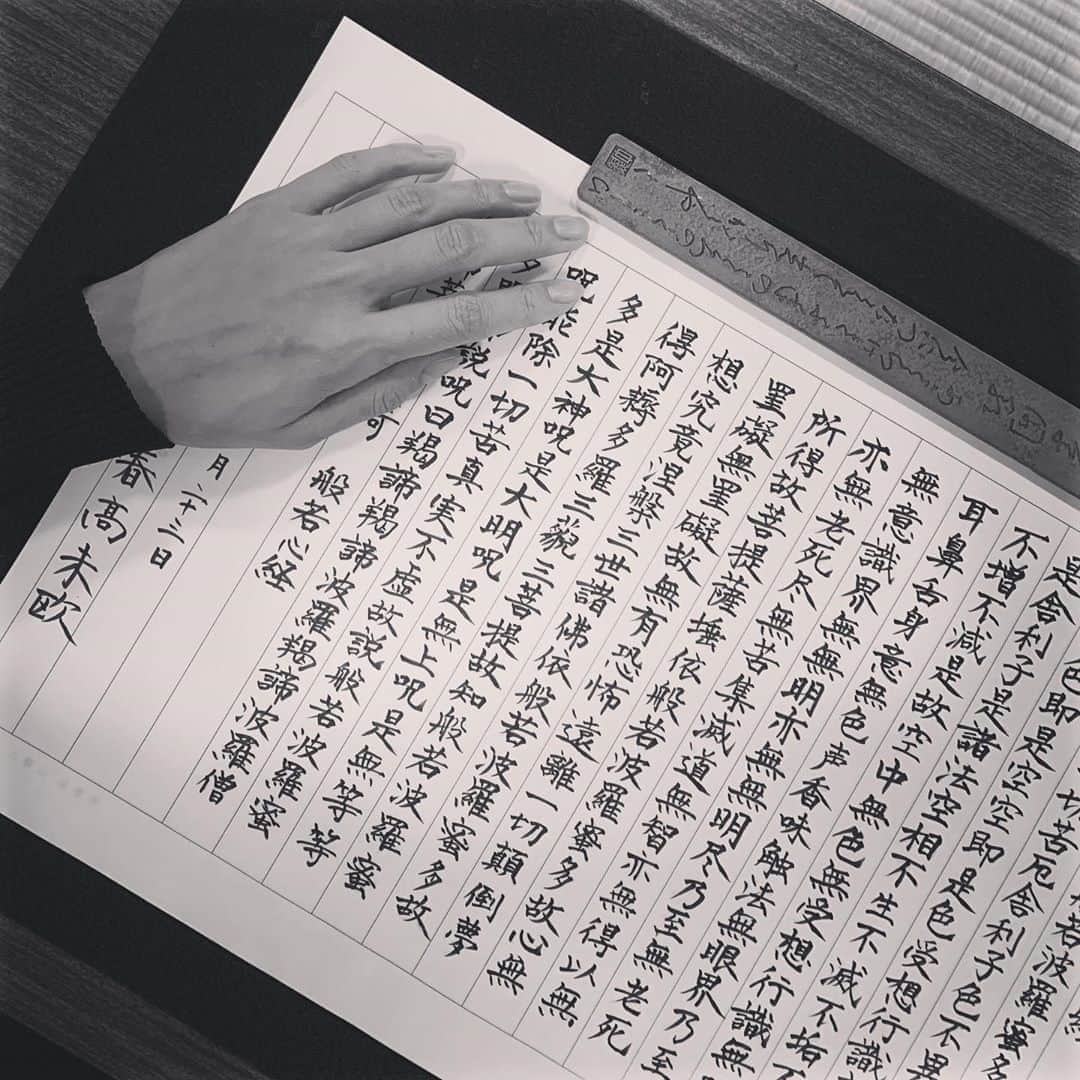 若波羅蜜多
切苦厄舎利子色不異
色即是空空即是色受想行識
是舎利子是諸法空相不生不滅不垢不
不増不減是故空中無色無受想行識無
耳鼻舌身意無色声香味触法無眼界乃至
無意識界無無明亦無無明尽乃至無老死
亦無老死尽無苦集滅道無智亦無得以無
所得故菩提薩埵依般若波羅蜜多故心無
罣礙無罣礙故無有恐怖遠離一切顛倒夢
想究竟涅槃三世諸佛依般若波羅蜜多故
得阿耨多羅三藐三菩提故知般若波羅蜜
多是大神呪是大明呪是無上呪是無等等
呪能除一切苦真実不虚故説般若波羅蜜
説呪曰羯諦羯諦波羅羯諦波羅僧
般若心経
月二十三日
春高未欧